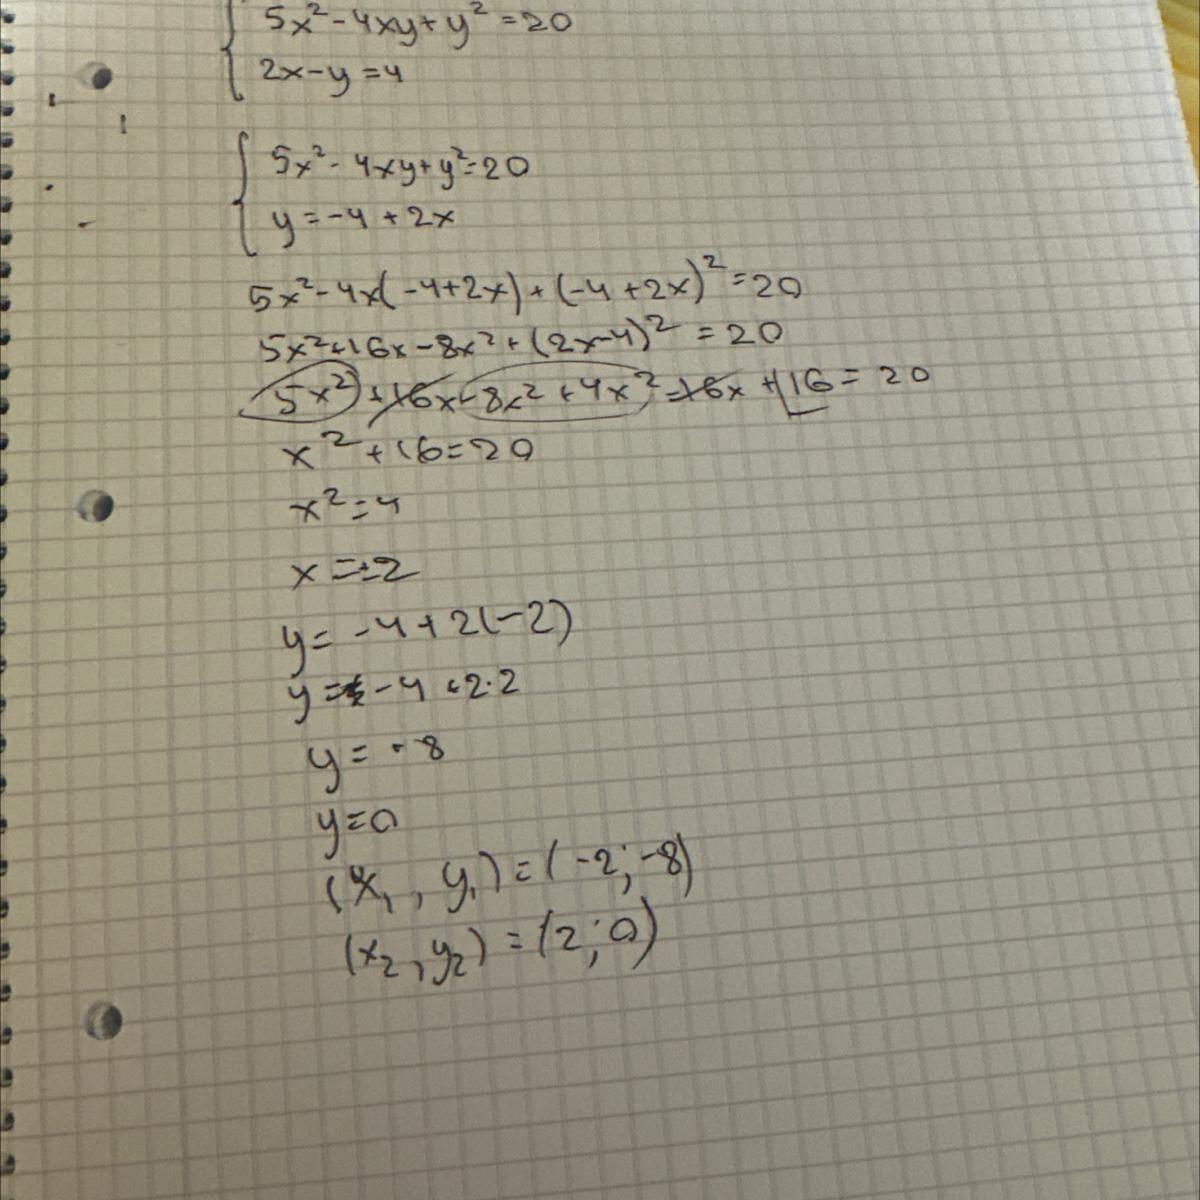 5x²-4xy+y²=20
2x-y=4
5x²-4xy+y²=20
y=-4+2x
5x²-4x(-4+2x)+(-4+2x)²=20
5x²+16x-8x²+(2x-4)²=20
5x²+16x-8x²+4x²-16x+16=20
x²+16=20
x²=4
x=±2
y=-4+2(-2)
y=-4+2·2
y=-8
y=0
(x₁,y₁)=(-2;-8)
(x₂,y₂)=(2;0)